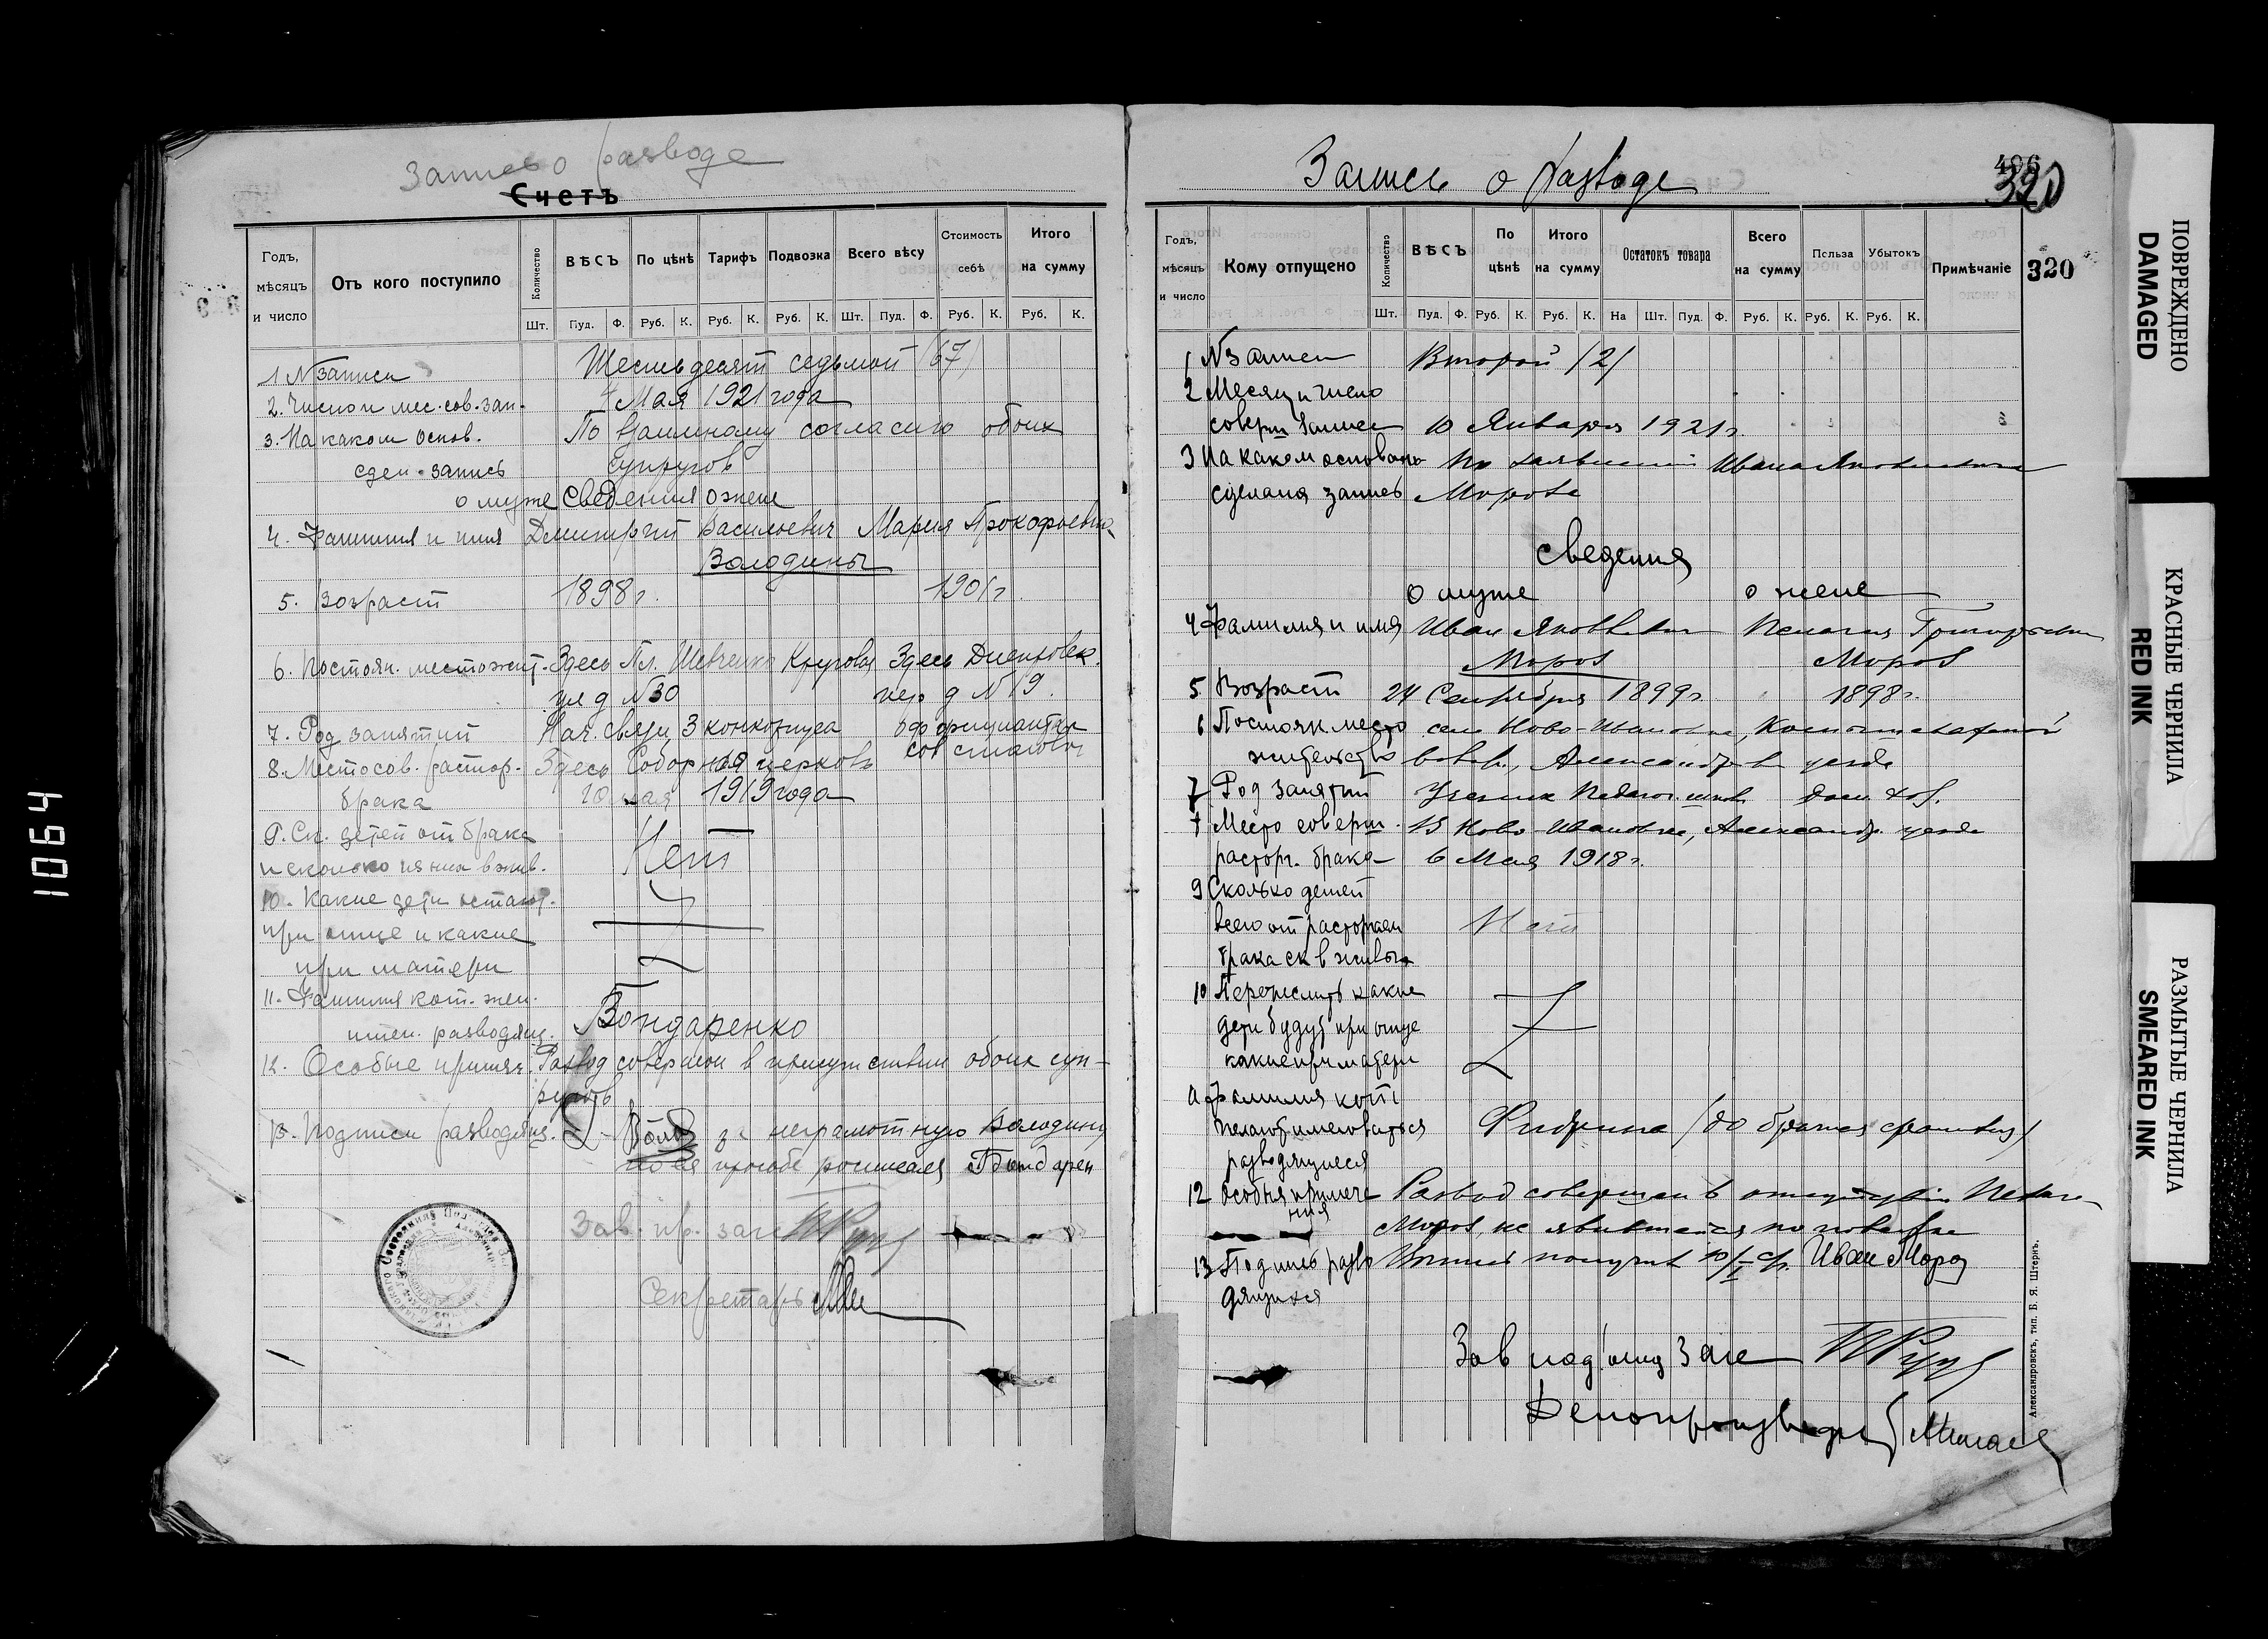 Запись о разводе
Счетъ
Годъ, мѣсяцъ и число
Отъ кого поступило
Количество
ВѢСЪ
По цѣнѣ
Тарифъ
Подвозка
Всего вѣсу
Стоимость себѣ
Итого на сумму
Шт. Пуд. Ф. Руб. К. Руб. К. Руб. К. Шт. Пуд. Ф. Руб. К. Руб. К.
1 № записи Шестьдесят седьмой (67)
2. Число и мес. сов. зап. 4 Мая 1921 года
3. На каком основ. По взаимному согласию обоих
сдел. запись супругов
о муже Сведения о жене
4. Фамилия и имя Димитрий Васильевич Мария Прокофьевна
Володины
5. Возраст 1898 г. 1901 г
6. Постоян. местожит. Здесь Пл. Шевченко Круговая Здесь
ул д № 30 пер д № 19.
7. Род занятий Нач. связи 3 конкорпуса
8. Место сов. растор. Здесь Соборная церковь сов столовой
брака 10 мая 1919 года
9. Ск. детей от брака
и сколько из них в жив. Нет
10. Какие дети остают.
при отце и какие
при матери
11. Фамилия кот. жел.
имен. разводящ. Бондаренко
12. Особые примеч. Развод совершен в присутствии обоих суп-
ругов
13. Подписи разводящ. за неграмотную Володину
по ее просьбе росписался Бондарен
Зав. пр. загс
Секретарь
Запись о разводе
406
320
Годъ, мѣсяцъ и число
Кому отпущено
Количество
ВѢСЪ
По цѣнѣ
Итого на сумму
Остатокъ товара
Всего на сумму
Польза
Убытокъ
Примѣчаніе
320
Шт. Пуд. Ф. Руб. К. Руб. К. На Шт. Пуд. Ф. Руб. К. Руб. К. Руб. К.
1 № записи Второй /2/
2 Месяц и число
соверш записи 10 Января 1921 г.
3 На каком основан По заявлению Ивана Яковлевича
сделана запись Мороза
Сведения
о муже о жене
4 Фамилия и имя Иван Яковлевич Пелагия Григорьевна
Мороз Мороз
5 Возраст 24 Сентября 1899 г. 1898 г.
6 Постоян. место село Ново-Ивановка,
жительство волости, Александров уезда
7 Род занятий Ученик Педагог. школ Дом. хоз.
Место соверш. В Ново-Ивановке, Александр. уезда
расторг. брака 6 Мая 1918 г.
9 Сколько детей
всего от расторгаем Нет
брака ск в живых
10 Перечислить какие
дети будут при отце
какие при матери
Фамилия кот
желают именоваться (до брачная фамилия)
разводящиеся
12 Особыя примеча Развод совершен в отсутствии Пелагеи
ния
Мороз, не явившейся по повестке
13 Подпись разво Иван Мороз
дящихся
Зав под'отд Загс
Делопроизводит
Александровскъ, тип. Б. Я. Штернъ.
ПОВРЕЖДЕНО
DAMAGED
КРАСНЫЕ ЧЕРНИЛА
RED INK
РАЗМЫТЫЕ ЧЕРНИЛА
SMEARED INK
1064